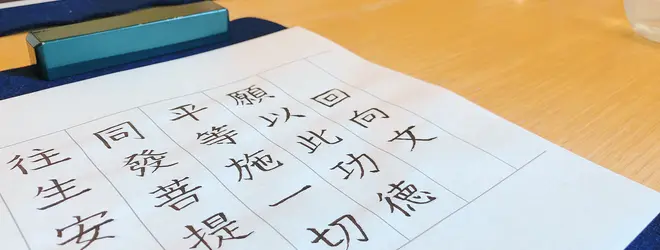 回向文
願以此功徳
平等施一切
同發菩提
往生安